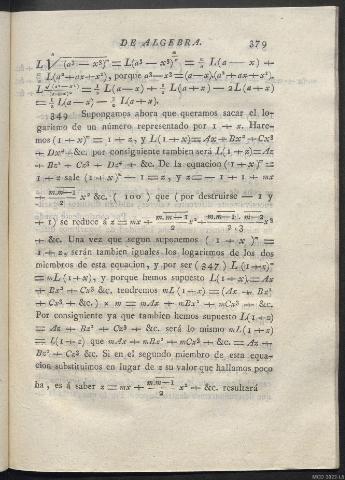 DE ALGEBRA. 379
L√(a³ — x³)ⁿ = L(a³ — x³)ⁿ = L(a — x) +
L(a² + ax + x²), porque a³ — x³ = (a — x)(a² + ax + x²).
= ½ L(a — x) + ½ L(a + x) — 2L(a + x)
= ½ L(a — x) — L(a + x).
349 Supongamos ahora que queramos sacar el lo-
garismo de un número representado por 1 + x. Hare-
mos (1 + x)ᵐ = 1 + z, y L(1 + x) = Ax + Bx² + Cx³
+ Dx⁴ + &c. por consiguiente tambien será L(1 + z) = Az
+ Bz² + Cz³ + Dz⁴ + &c. De la equacion (1 + x)ᵐ =
1 + z sale (1 + x)ᵐ — 1 = z, y z = — 1 + 1 + mx
+ m.m—1/2 x² &c. (100) que (por destruirse — 1 y
+ 1) se reduce á z = mx + m.m—1/2 x² + m.m—1.m—2/2.3 x³
+ &c. Una vez que segun suponemos (1 + x)ᵐ =
1 + z, serán tambien iguales los logarismos de los dos
miembros de esta equacion, y por ser (347) L(1 + x)ᵐ
= mL(1 + x), y porque hemos supuesto L(1 + x) = Ax
+ Bx² + Cx³ &c. tendremos mL(1 + x) = (Ax + Bx²
+ Cx³ + &c.) × m = mAx + mBx² + mCx³ + &c.
Por consiguiente ya que tambien hemos supuesto L(1 + z)
= Az + Bz² + Cz³ + &c. será lo mismo mL(1 + x)
= L(1 + z) que mAx + mBx² + mCx³ + &c. = Az +
Bz² + Cz³ &c. Si en el segundo miembro de esta equa-
cion substituimos en lugar de z su valor que hallamos poco
ha, es á saber z = mx + m.m—1/2 x² + &c. resultará